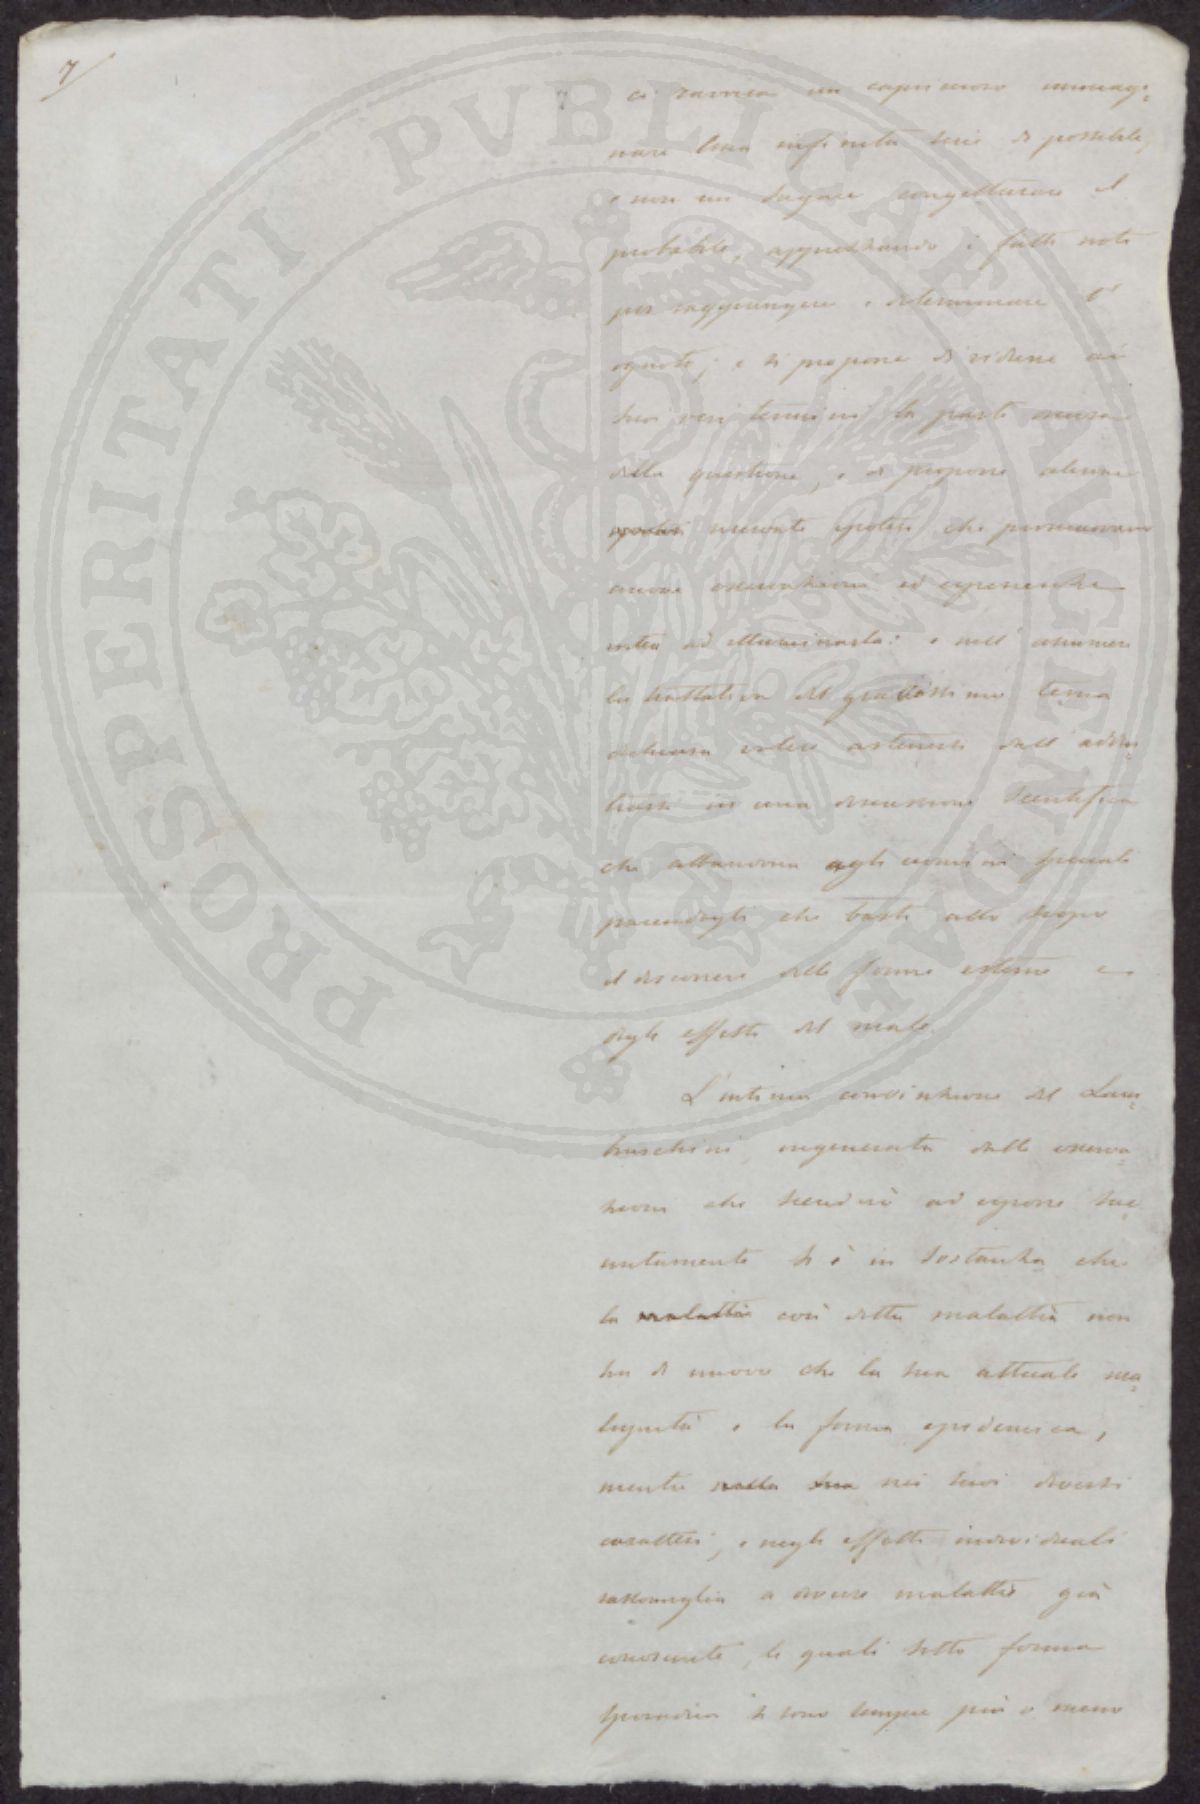 7
ci ravvisa un capriccioso immagi=
nare una infinita serie di possibili,
e non un sagace congetturare il
probabile, apprezzando i fatti noti
per raggiungere e determinare l'
ignoto; e si propone di ridurre ai
suoi veri termini la parte oscura
della questione, e di proporre alcune
ipotesi che promuovano
nuove osservazioni ed esperienze
intese ad illuminarla: e nell'assumere
la trattativa del gravissimo tema
dichiara volere astenersi dall'adden=
trarsi in una discussione scientifica
che abbandona agli uomini speciali
parendogli che basti allo scopo
il discorrere delle forme esterne e
degli effetti del male.
L'intima convinzione del Lam=
bruschini, ingenerata dalle osserva=
zioni che scenderà ad esporre suc=
cintamente si è in sostanza che
la malattia così detta malattia non
ha di nuovo che la sua attuale ma=
lignità e la forma epidemica,
mentre nella sua nei suoi diversi
caratteri, e negli effetti individuali
rassomiglia a diverse malattie già
conosciute, le quali sotto forma
sporadica si sono sempre più o meno
PROSPERITATI PVBLICAE AVGENDAE